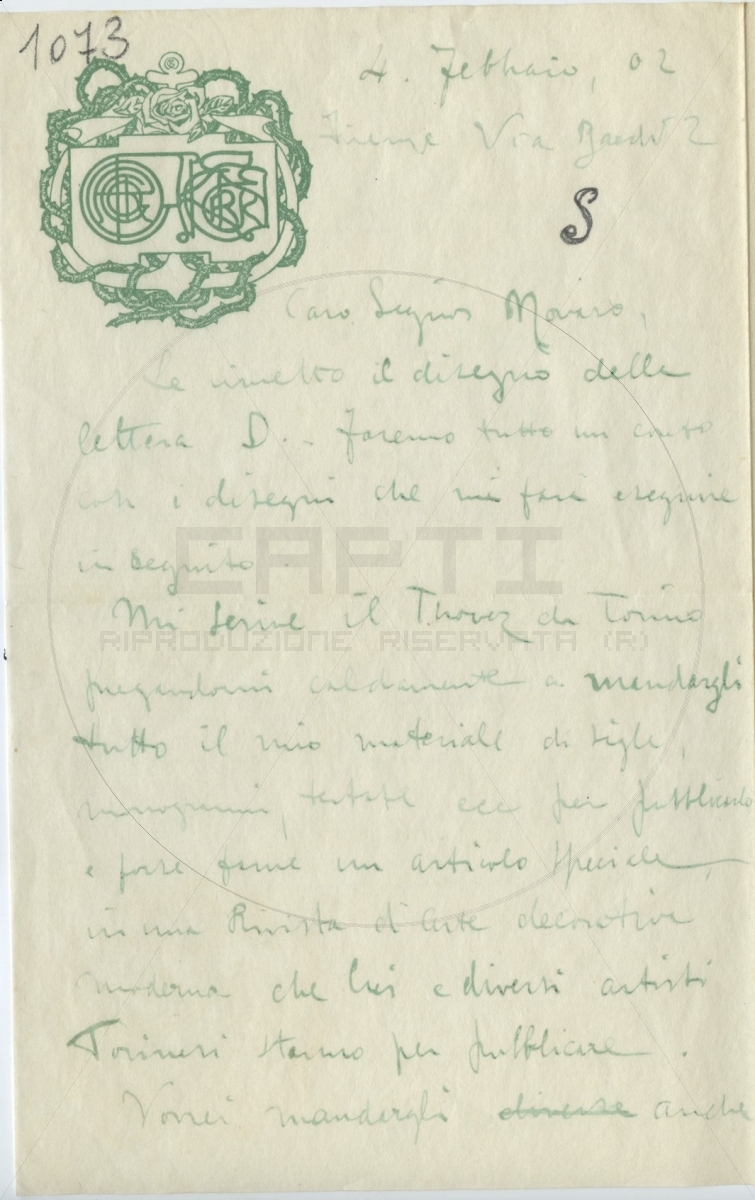 1073
4. Febbraio, 02
Firenze Via Bardi 2
S
Caro Signor Novaro,
Le rimetto il disegno della
lettera D. - Faremo tutto un conto
con i disegni che mi farà eseguire
in seguito.
Mi scrive il Thovez da Torino
pregandomi caldamente a mandargli
tutto il mio materiale di sigle,
monogrammi, testate ecc per pubblicarlo
e forse farne un articolo speciale,
in una Rivista d'Arte decorativa
moderna che lui e diversi artisti
Torinesi stanno per pubblicare.
Vorrei mandargli diverse anche
CAPTI
RIPRODUZIONE RISERVATA (R)